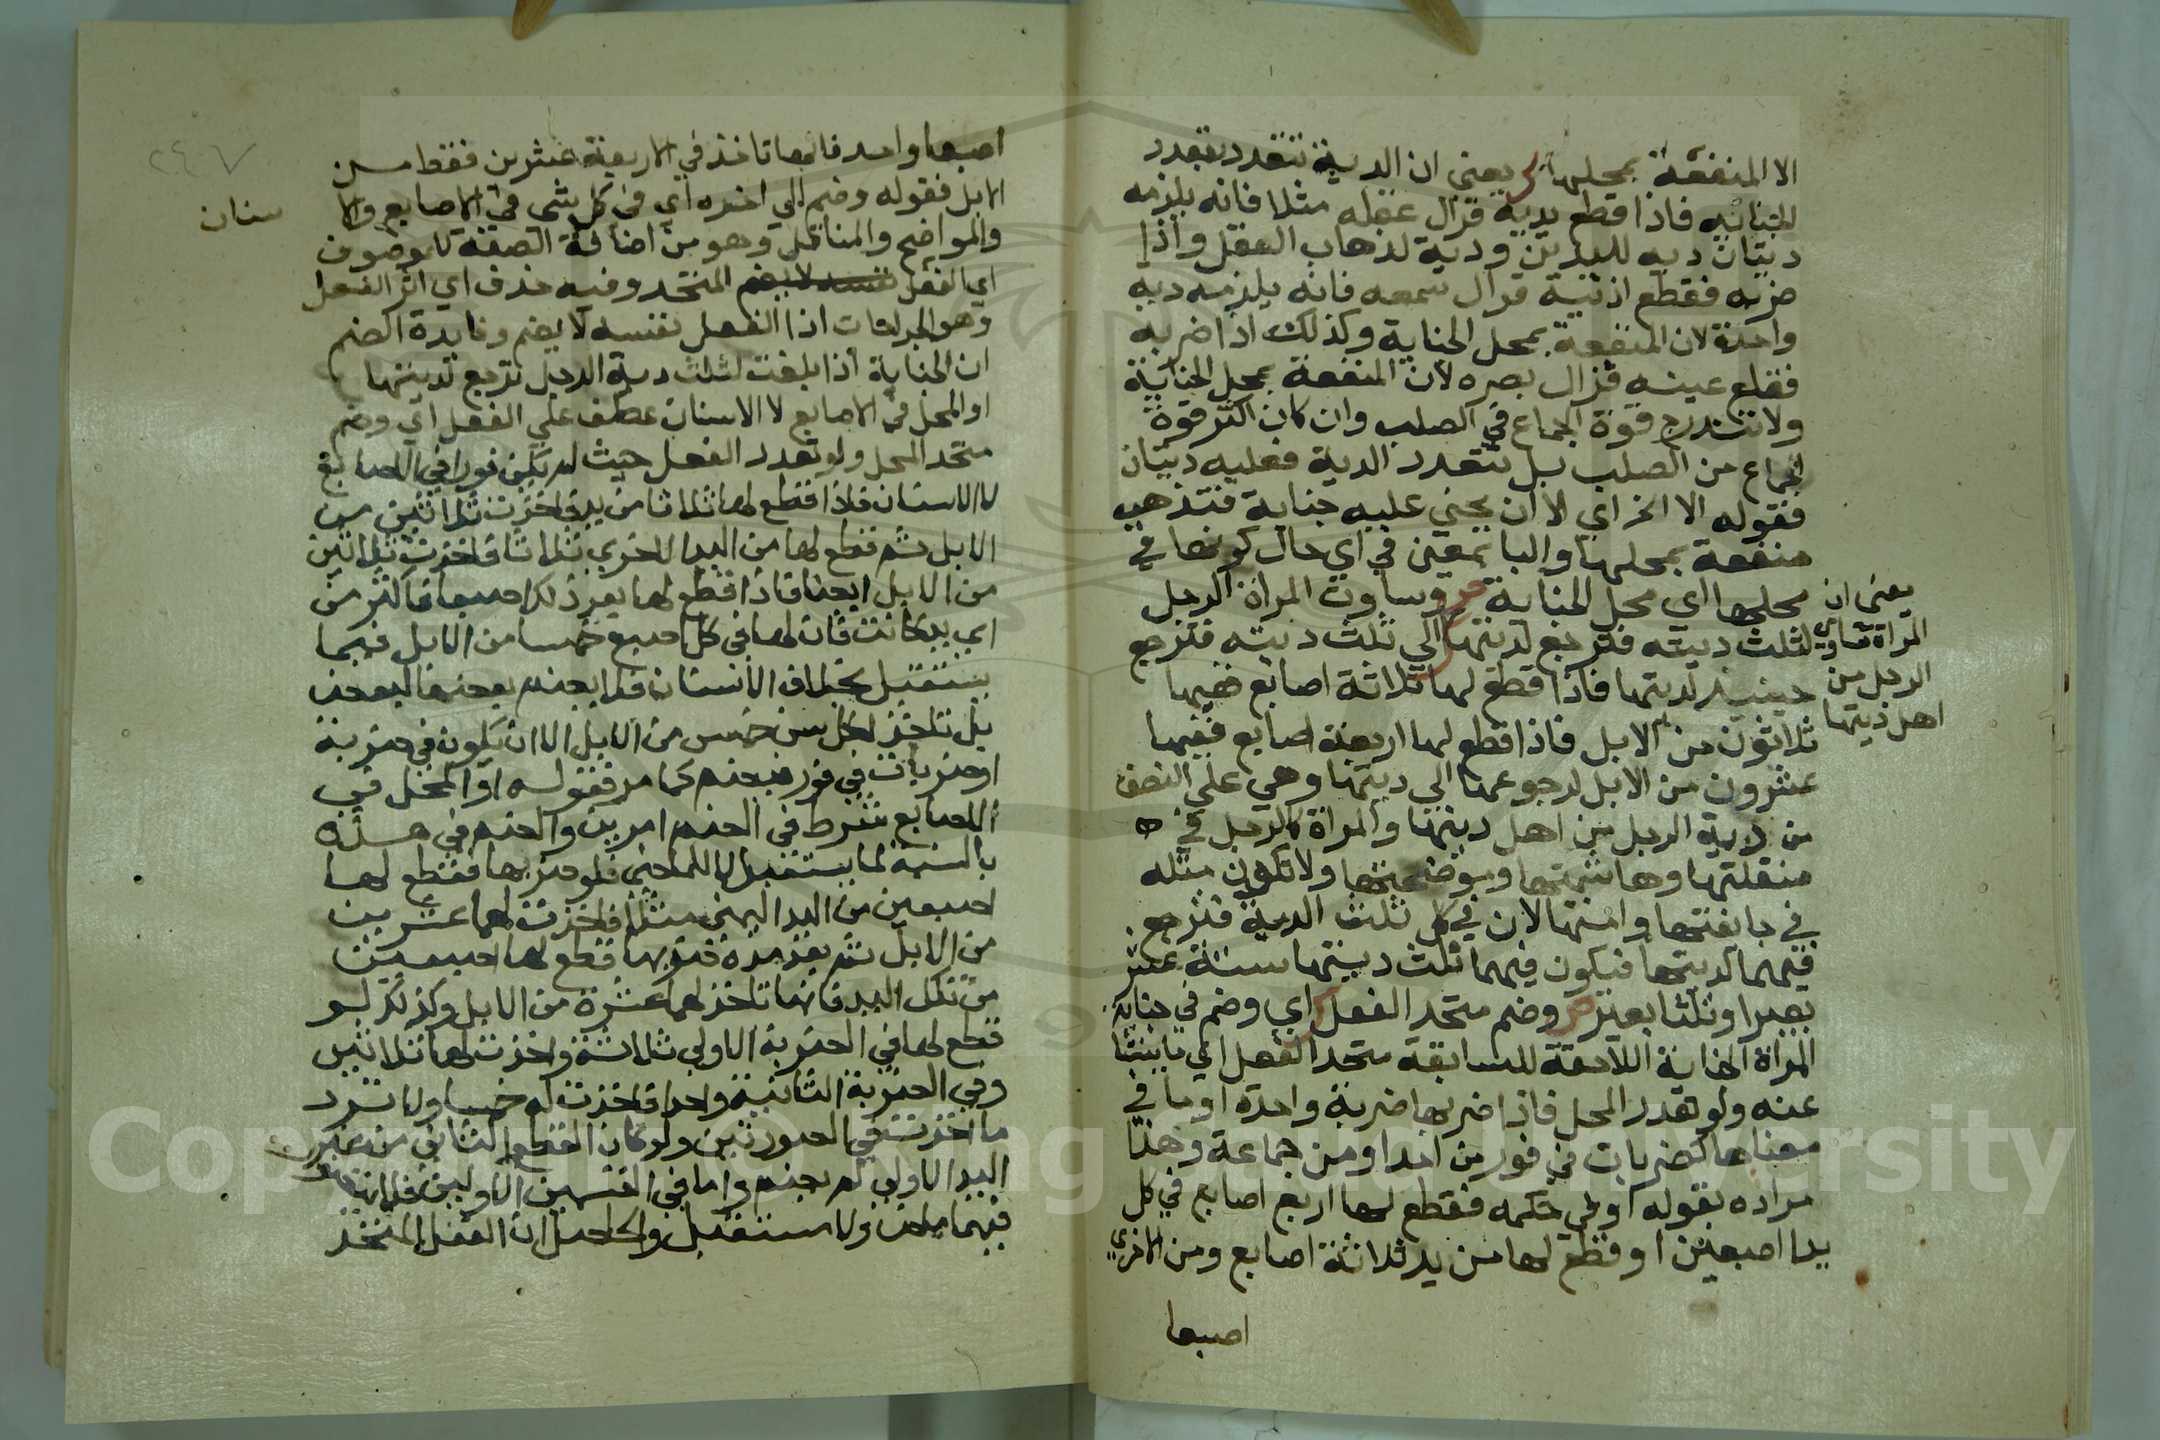 الا المنفعة بمحلها ش يعني ان الدية تتعدد بتعدد
الجناية فاذا قطع يديه فزال عقله مثلا فانه يلزمه
ديتان دية لليدين ودية لذهاب العقل واذا
ضربه فقطع اذنيه فزال سمعه فانه يلزمه دية
واحدة لان المنفعة بمحل الجناية وكذلك اذا ضربه
فقلع عينه فزال بصره لان المنفعة بمحل الجناية
ولا تندرج قوة الجماع في الصلب وان كان اكثر قوة
الجماع من الصلب بل تتعدد الدية فعليه ديتان
فقوله الا الخ اي الا ان يجني عليه جناية فتذهب
منفعة بمحلها والبا بمعنى في اي حال كونها في
محلها اي محل الجناية ص وساوت المراة الرجل
لثلث ديته فترجع لديتها ش الي ثلث ديته فترجع
حينيذ لديتها فاذا قطع لها ثلاثة اصابع ففيها
ثلاثون من الابل فاذا قطع لها اربعة اصابع ففيها
عشرون من الابل لرجوعها الي ديتها وهي علي النصف
من دية الرجل من اهل دينها والمراة كالرجل في
منقلتها وهاشمتها وموضحتها ولا تكون مثله
في جايفتها وامتها لان في كل ثلث الدية فترجع
فيهما لديتها فيكون فيهما ثلث ديتها ستة عشر
بعيرا وثلثا بعير ص وضم متحد الفعل ش اي وضم في جناية
المراة الجناية اللاحقة للسابقة متحد الفعل اي ما ينشا
عنه ولو تعدد المحل فاذا ضربها ضربة واحدة او ما في
معناها كضربات في فور من احد او من جماعة وهذا
مراده بقوله او في حكمه فقطع لها اربع اصابع في كل
يد اصبعين او قطع لها من يد ثلاثة اصابع ومن الاخري
اصبعا
يعني ان
المراة تساوي
الرجل من
اهل دينها
اصبعا واحد فانها تاخذ في الاربعة عشرين فقط من
الابل فقوله وضم الي اخره اي في كل شي في الاصابع والا
سنان
والمواضح والمناقل وهو من اضافة الصفة للموصوف
اي الفعل المتحد وفيه حذف اي اثر الفعل
وهو الجراحات اذ الفعل نفسه لا يضم وفايدة الضم
ان الجناية اذا بلغت لثلث دية الرجل ترجع لديتها
او المحل في الاصابع لا الاسنان عطف علي الفعل اي وضم
متحد المحل ولو تعدد الفعل حيث لم يكن فورا في الاصابع
لا الاسنان فاذا قطع لها ثلاثا من يد فاخذت ثلاثين من
الابل ثم قطع لها من اليد الاخري ثلاثا فاخذت ثلاثين
من الابل ايضا فاذا قطع لها بعد ذلك اصبعا فاكثر من
اي يد كانت فان لها في كل اصبع خمسا من الابل فيما
يستقبل بخلاف الاسنان فلا يضم بعضها لبعض
بل تاخذ لكل سن خمس من الابل الا ان يكون في ضربة
او ضربات في فور فيضم كما مر فقوله او المحل في
الاصابع شرط في الضم امرين والضم في هذه
بالنسبة لما يستقبل لا للماضي فلو ضربها فقطع لها
اصبعين من اليد اليمني مثلا فاخذت لهما عشرين
من الابل ثم بعد مدة ضربها فقطع لها اصبعين
من تلك اليد فانها تاخذ لهما عشرة من الابل وكذلك لو
قطع لها في الضربة الاولي ثلاثة واخذت لها ثلاثين
وفي الضربة الثانية واحدا فاخذت له خمسا ولا ترد
ما اخذت في الصورتين ولو كان القطع الثاني من غير
اليد الاولي لم يضم واما في القسمين الاولين فلانه
فيهما ماض ولا مستقبل والحاصل ان الفعل المتحد